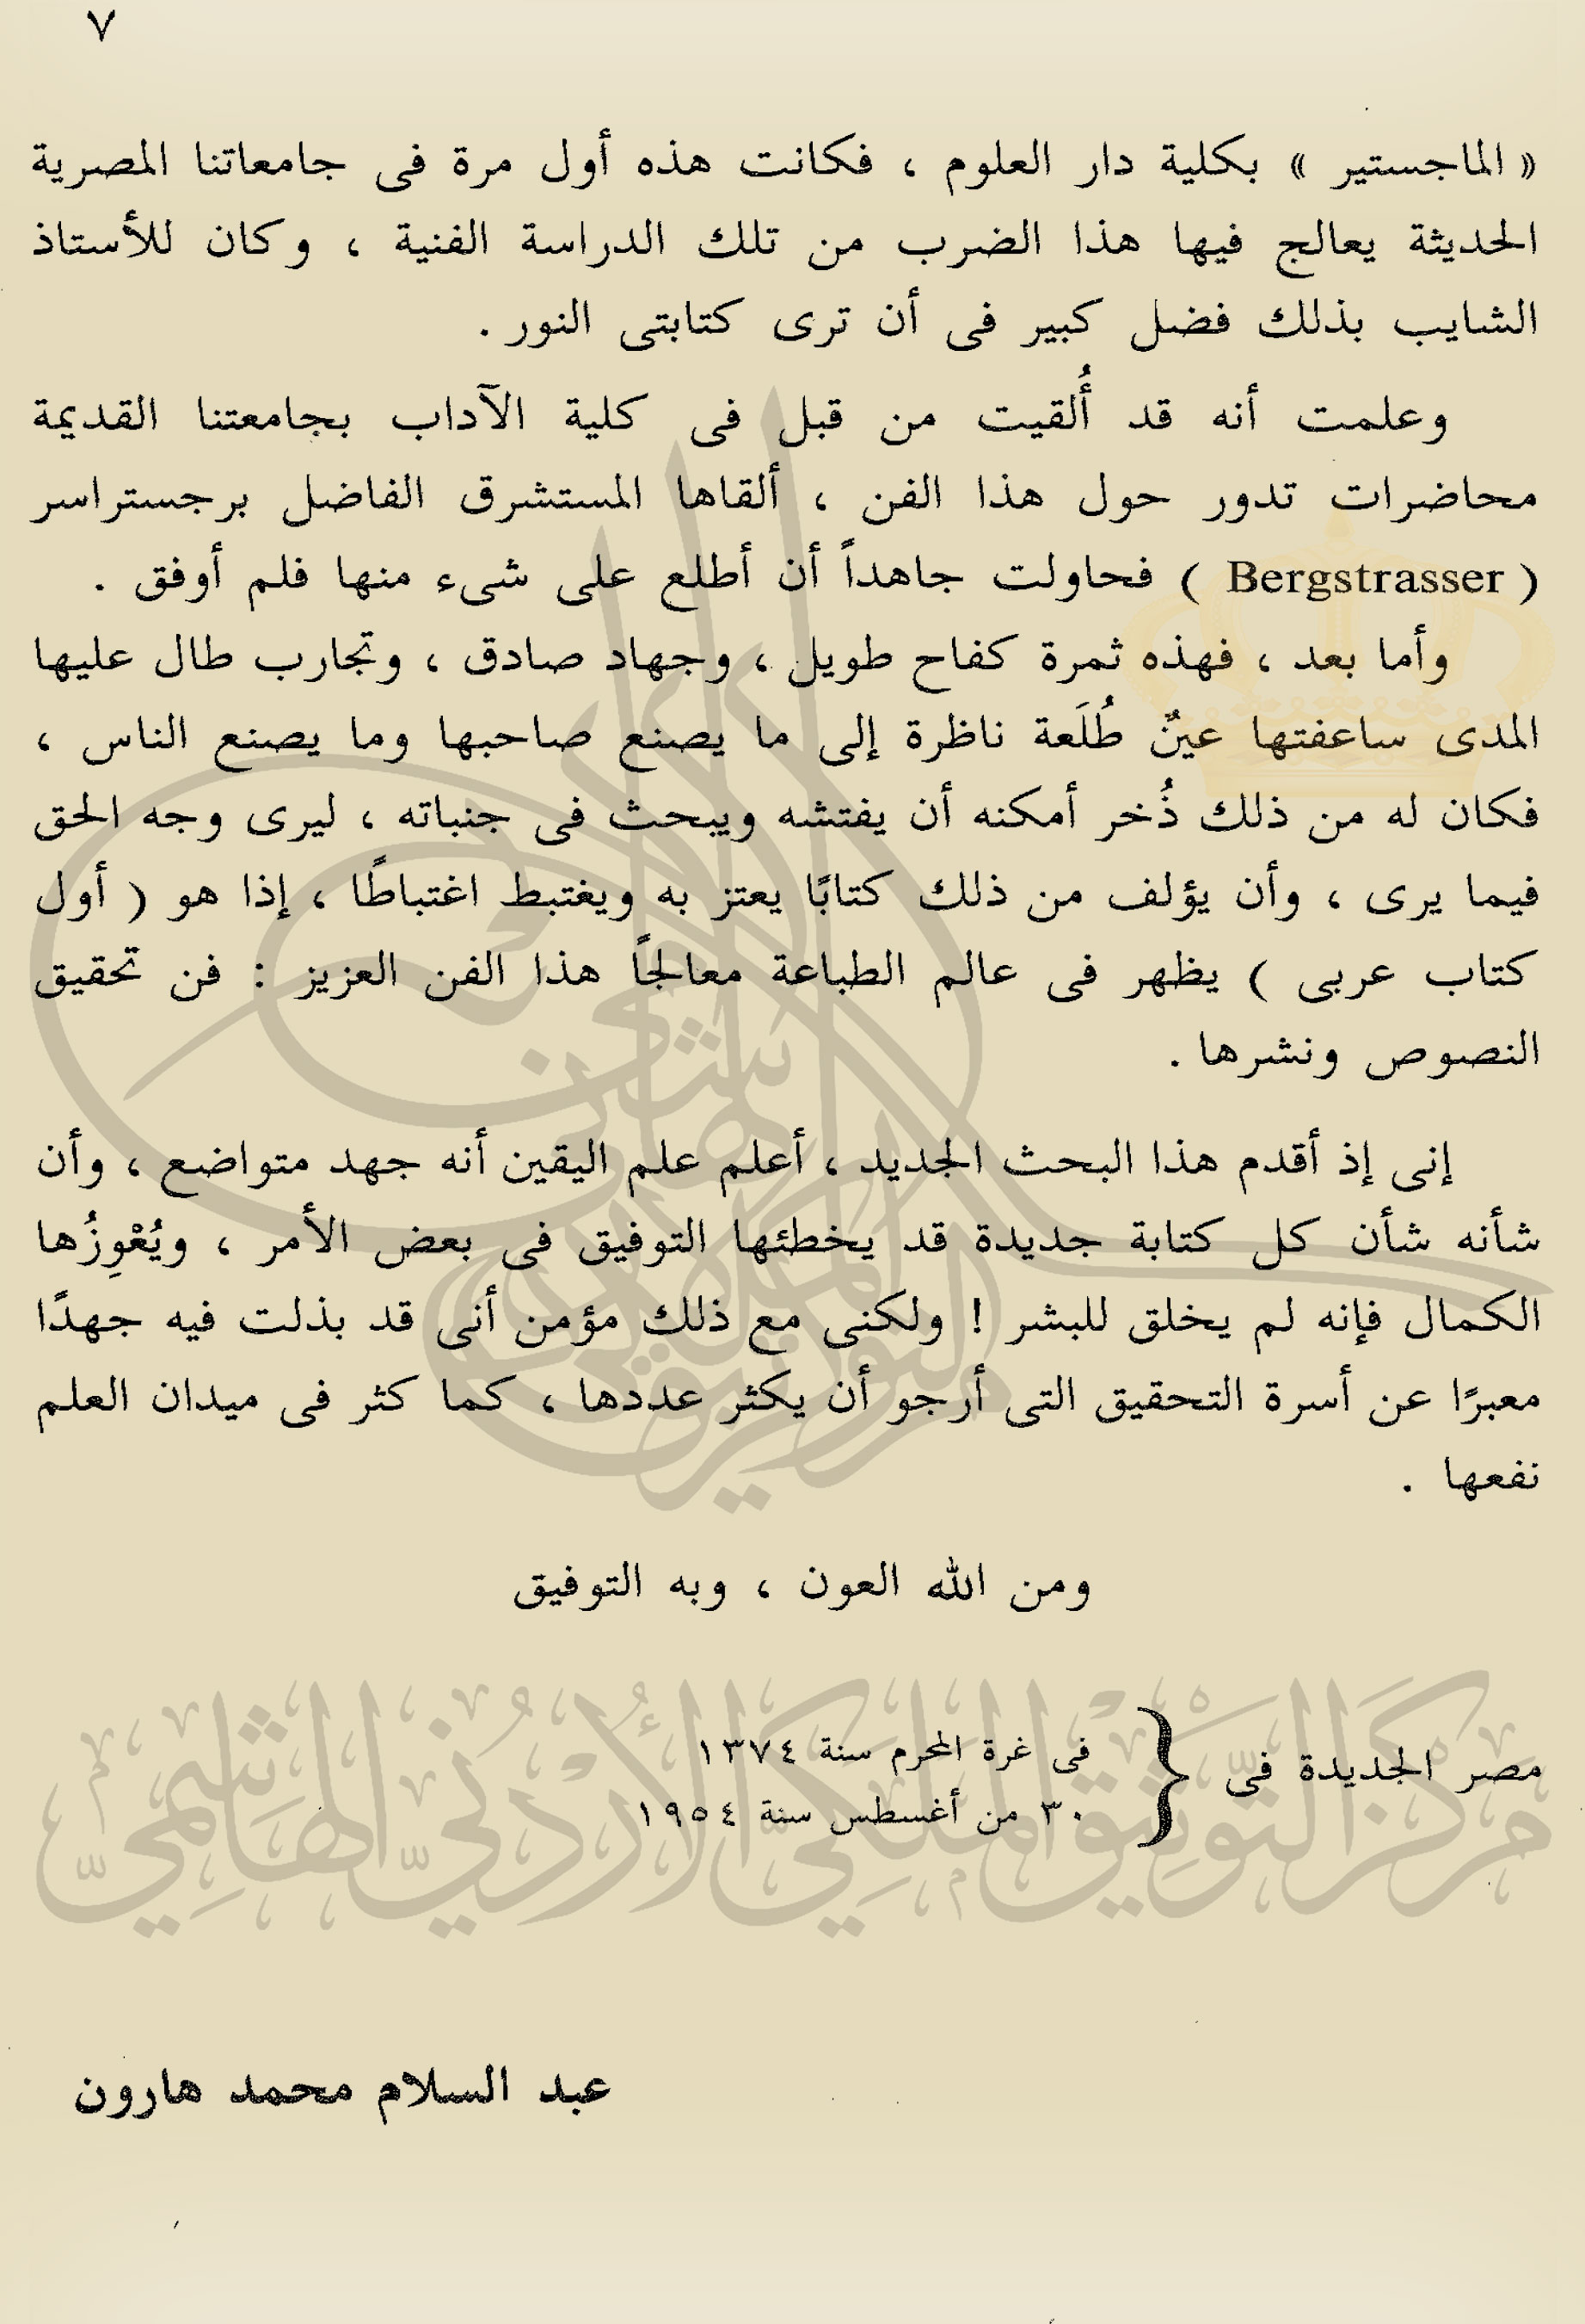 ٧
« الماجستير » بكلية دار العلوم ، فكانت هذه أول مرة فى جامعاتنا المصرية
الحديثة يعالج فيها هذا الضرب من تلك الدراسة الفنية ، وكان للأستاذ
الشايب بذلك فضل كبير فى أن ترى كتابتى النور .
وعلمت أنه قد أُلقيت من قبل فى كلية الآداب بجامعتنا القديمة
محاضرات تدور حول هذا الفن ، ألقاها المستشرق الفاضل برجستراسر
( Bergstrasser ) فحاولت جاهداً أن أطلع على شىء منها فلم أوفق .
وأما بعد ، فهذه ثمرة كفاح طويل ، وجهاد صادق ، وتجارب طال عليها
المدى ساعفتها عينٌ طُلَعة ناظرة إلى ما يصنع صاحبها وما يصنع الناس ،
فكان له من ذلك ذُخر أمكنه أن يفتشه ويبحث فى جنباته ، ليرى وجه الحق
فيما يرى ، وأن يؤلف من ذلك كتابًا يعتز به ويغتبط اغتباطًا ، إذا هو ( أول
كتاب عربى ) يظهر فى عالم الطباعة معالجاً هذا الفن العزيز : فن تحقيق
النصوص ونشرها .
إنى إذ أقدم هذا البحث الجديد ، أعلم علم اليقين أنه جهد متواضع ، وأن
شأنه شأن كل كتابة جديدة قد يخطئها التوفيق فى بعض الأمر ، ويُعْوِزُها
الكمال فإنه لم يخلق للبشر ! ولكنى مع ذلك مؤمن أنى قد بذلت فيه جهدًا
معبرًا عن أسرة التحقيق التى أرجو أن يكثر عددها ، كما كثر فى ميدان العلم
نفعها .
ومن الله العون ، وبه التوفيق
مصر الجديدة فى { فى غرة المحرم سنة ١٣٧٤
٣٠ من أغسطس سنة ١٩٥٤
مركز التوثيق الملكي الأردني الهاشمي
عبد السلام محمد هارون